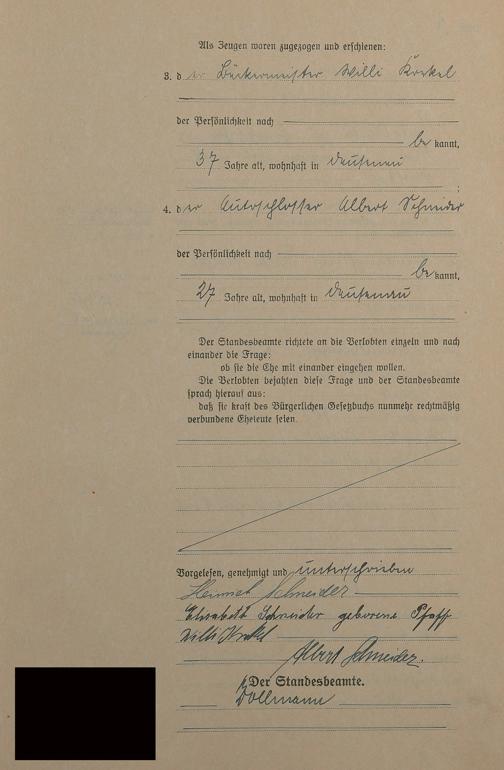 Als Zeugen waren zugezogen und erschienen:
3. der Bäckermeister Willi Krekel
der Persönlichkeit nach
bekannt,
37 Jahre alt, wohnhaft in Dausenau
;
4. der Autoschlosser Albert Schneider
der Persönlichkeit nach
bekannt,
27 Jahre alt, wohnhaft in Dausenau
Der Standesbeamte richtete an die Verlobten einzeln und nach
einander die Frage:
ob sie die Ehe mit einander eingehen wollen.
Die Verlobten bejahten diese Frage und der Standesbeamte
sprach hierauf aus:
daß sie kraft des Bürgerlichen Gesetzbuchs nunmehr rechtmäßig
verbundene Eheleute seien.
Vorgelesen, genehmigt und unterschrieben
Schneider
Elisabeth Schneider geborene Pfaff
Willi Krekel
Albert Schneider.
Der Standesbeamte.
Dollmann